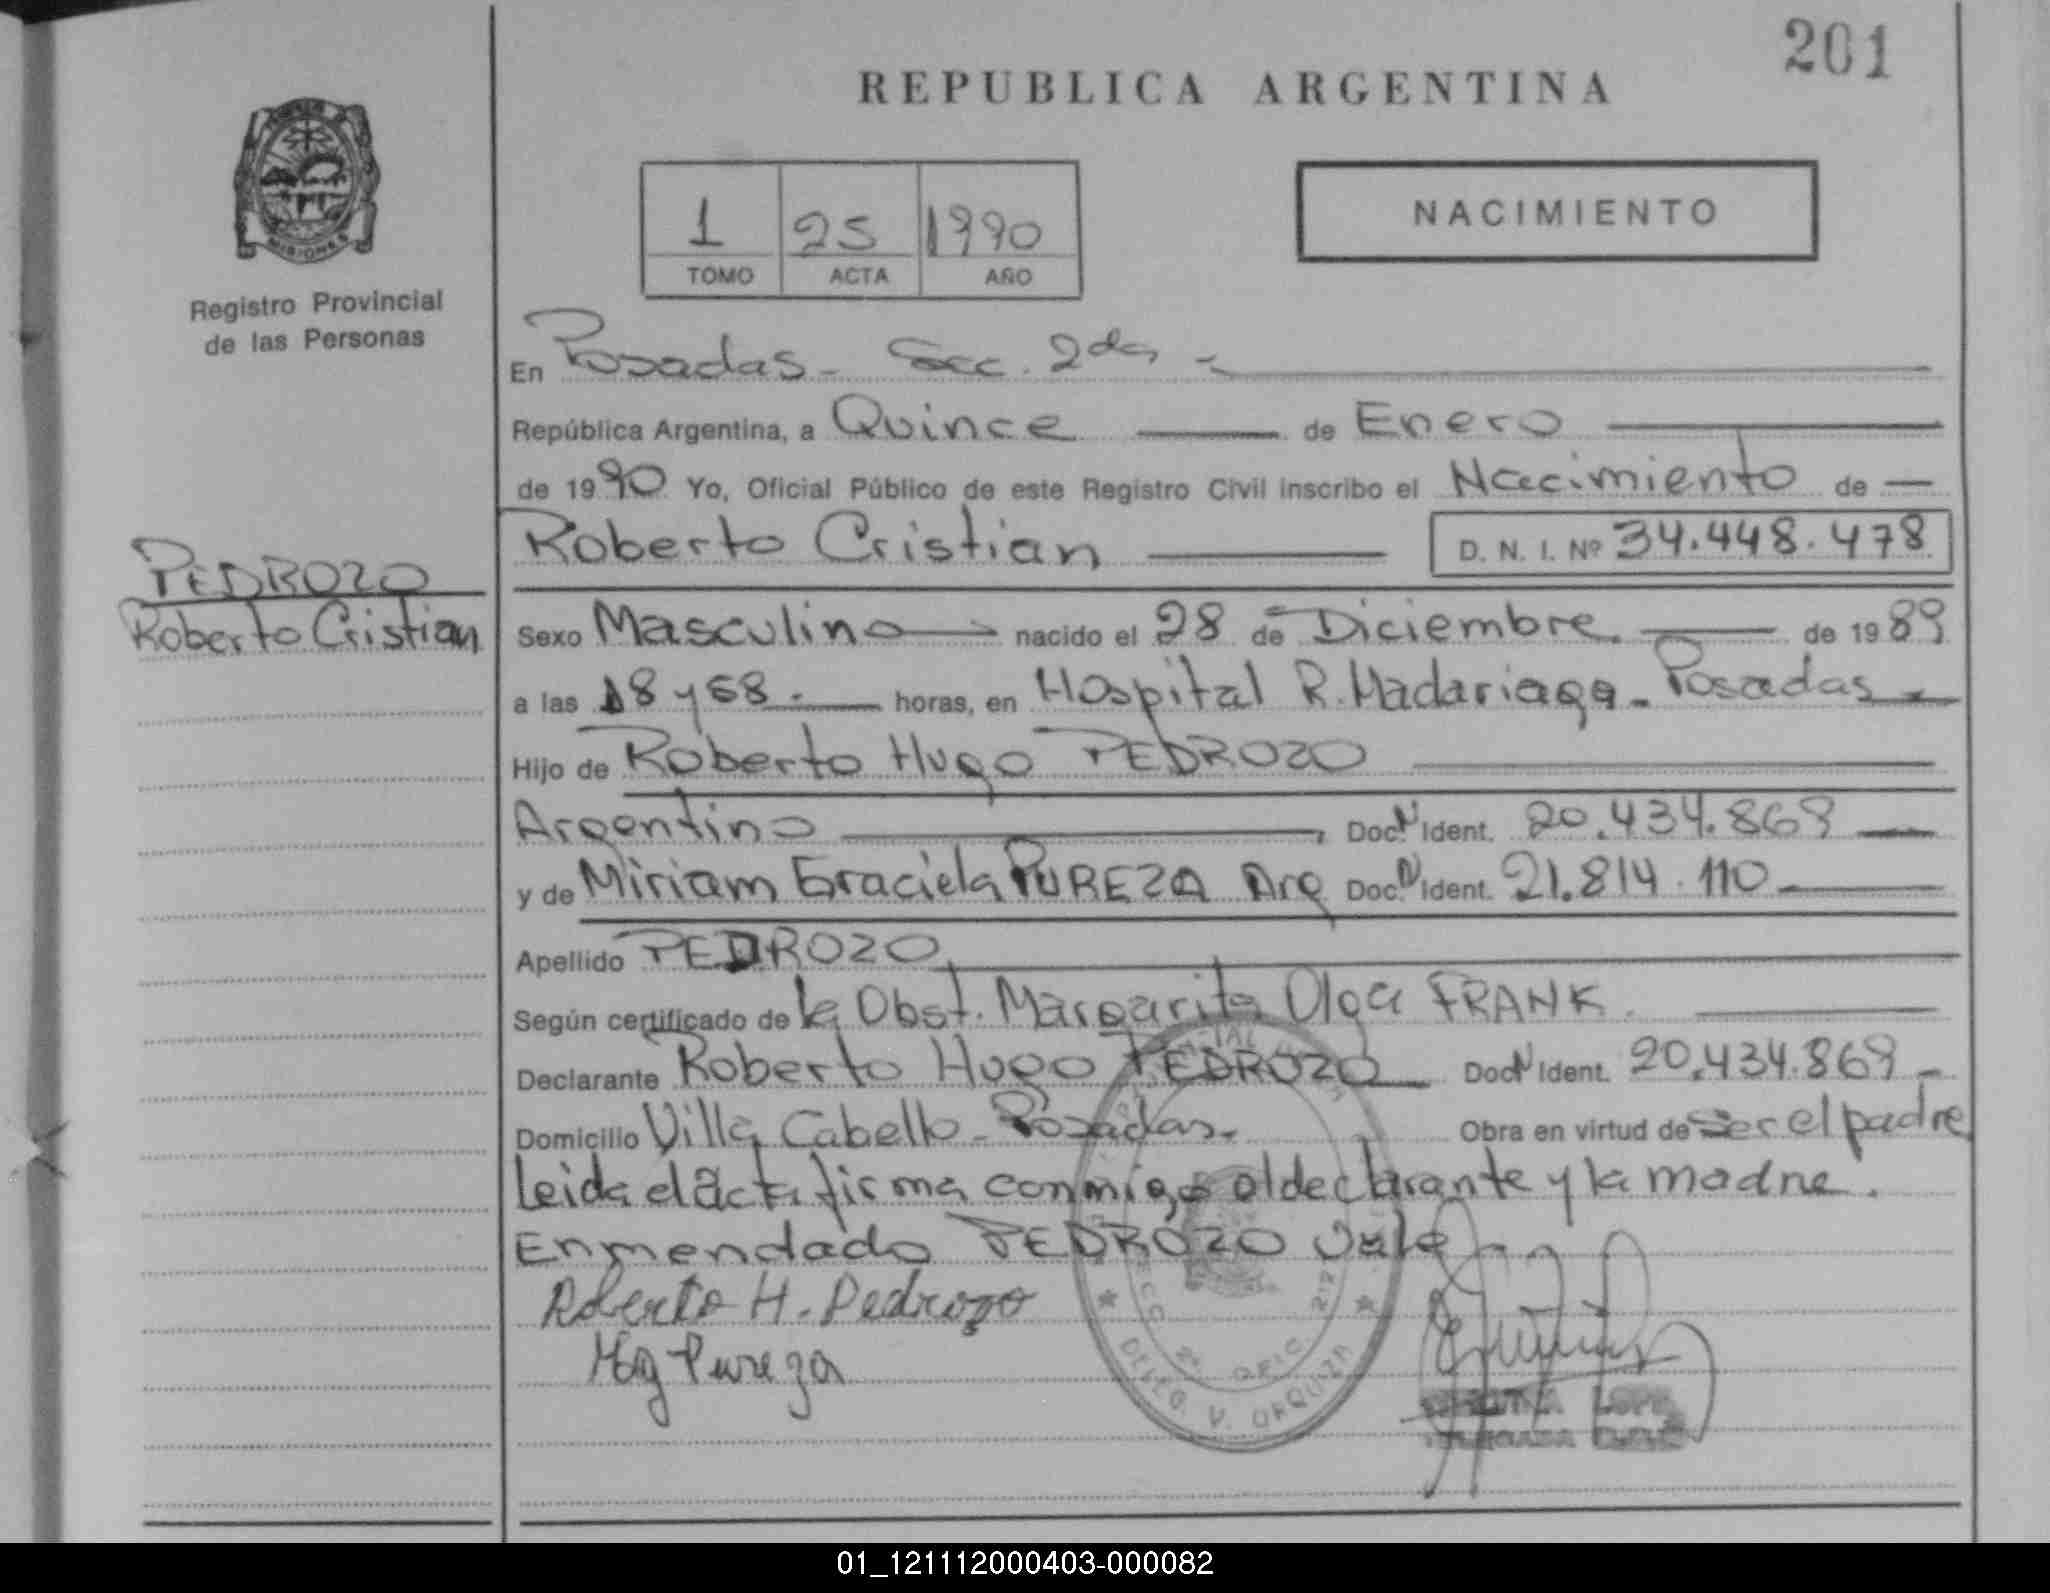 201
REPUBLICA ARGENTINA
MISIONES
Registro Provincial
de las Personas
1 25 1990
TOMO ACTA AÑO
NACIMIENTO
En Posadas - Secc. 2da -
República Argentina, a Quince de Enero
de 1990 Yo, Oficial Público de este Registro Civil inscribo el Nacimiento de
Roberto Cristian D. N. I. Nº 34.448.478
PEDROZO
Roberto Cristian
Sexo Masculino nacido el 28 de Diciembre de 1989
a las 18 y 58 horas, en Hospital R. Madariaga - Posadas
Hijo de Roberto Hugo PEDROZO
Argentino Doc. N Ident. 20.434.869
y de Miriam Graciela PUREZA Arg Doc. N Ident. 21.814.110
Apellido PEDROZO
Según certificado de la Obst. Margarita Olga FRANK.
Declarante Roberto Hugo PEDROZO Doc. N Ident. 20.434.869
Domicilio Villa Cabello - Posadas. Obra en virtud de ser el padre
Leida el acta firma conmigo el declarante y la madre.
Enmendado PEDROZO Vale
Roberto H. Pedrozo
Mg Pureza
DELEG. V. URQUIZA
01_121112000403-000082